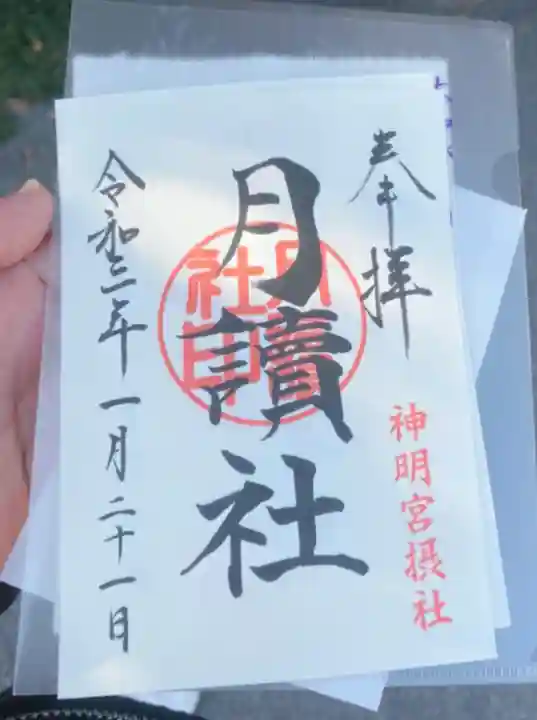 奉拝
神明宮摂社
月讀社
令和三年一月二十一日